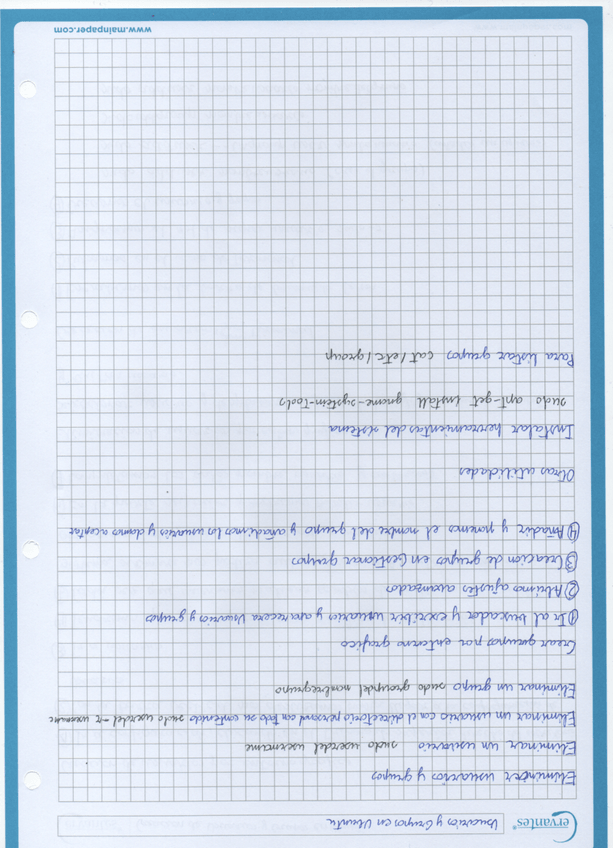 Cervantes®
Usuarios y Grupos en Ubuntu
Eliminar usuarios y grupos
Eliminar un usuario sudo userdel username
Eliminar un usuario con el directorio personal con todo su contenido sudo userdel -r username
Eliminar un grupo sudo groupdel nombregrupo
Crear grupos por entorno grafico
① Ir al buscador y escribir usuarios y aparecera Usuarios y grupos
② Abrimos ajustes avanzados
③ Creacion de grupos en Gestionar grupos
④ Añadir y ponemos el nombre del grupo y añadimos los usuarios y damos aceptar
Otras utilidades
Instalar herramientas del sistema
sudo apt-get install gnome-system-tools
Para listar grupos cat /etc/group
www.mainpaper.com